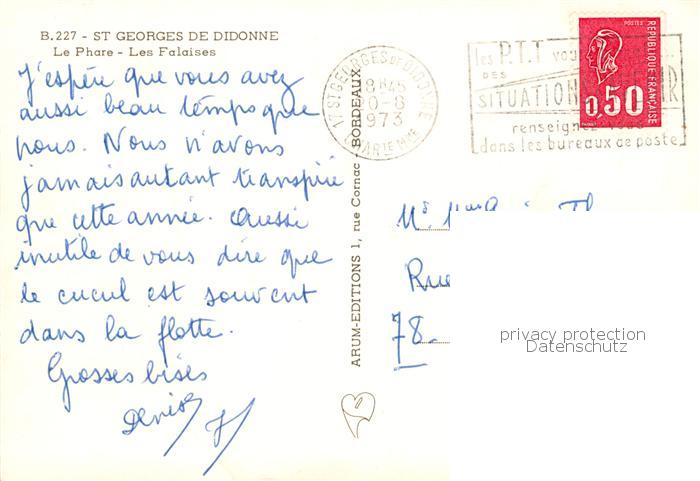 B.227 - ST GEORGES DE DIDONNE
Le Phare - Les Falaises
J'espère que vous avez
aussi beau temps que
nous. Nous n'avons
jamais autant transpiré
que cette année. Aussi
inutile de vous dire que
le cucul est souvent
dans la flotte.
Grosses bises
Denise
ARUM-EDITIONS 1, rue Cornac - BORDEAUX
17 ST GEORGES DE DIDONNE
18H45
0-8
1973
CHARTE MME
les P.T.T
DES
SITUATION
renseignez
dans les bureaux de poste
POSTES
REPUBLIQUE FRANÇAISE
0,50
Rue
78.
privacy protection
Datenschutz